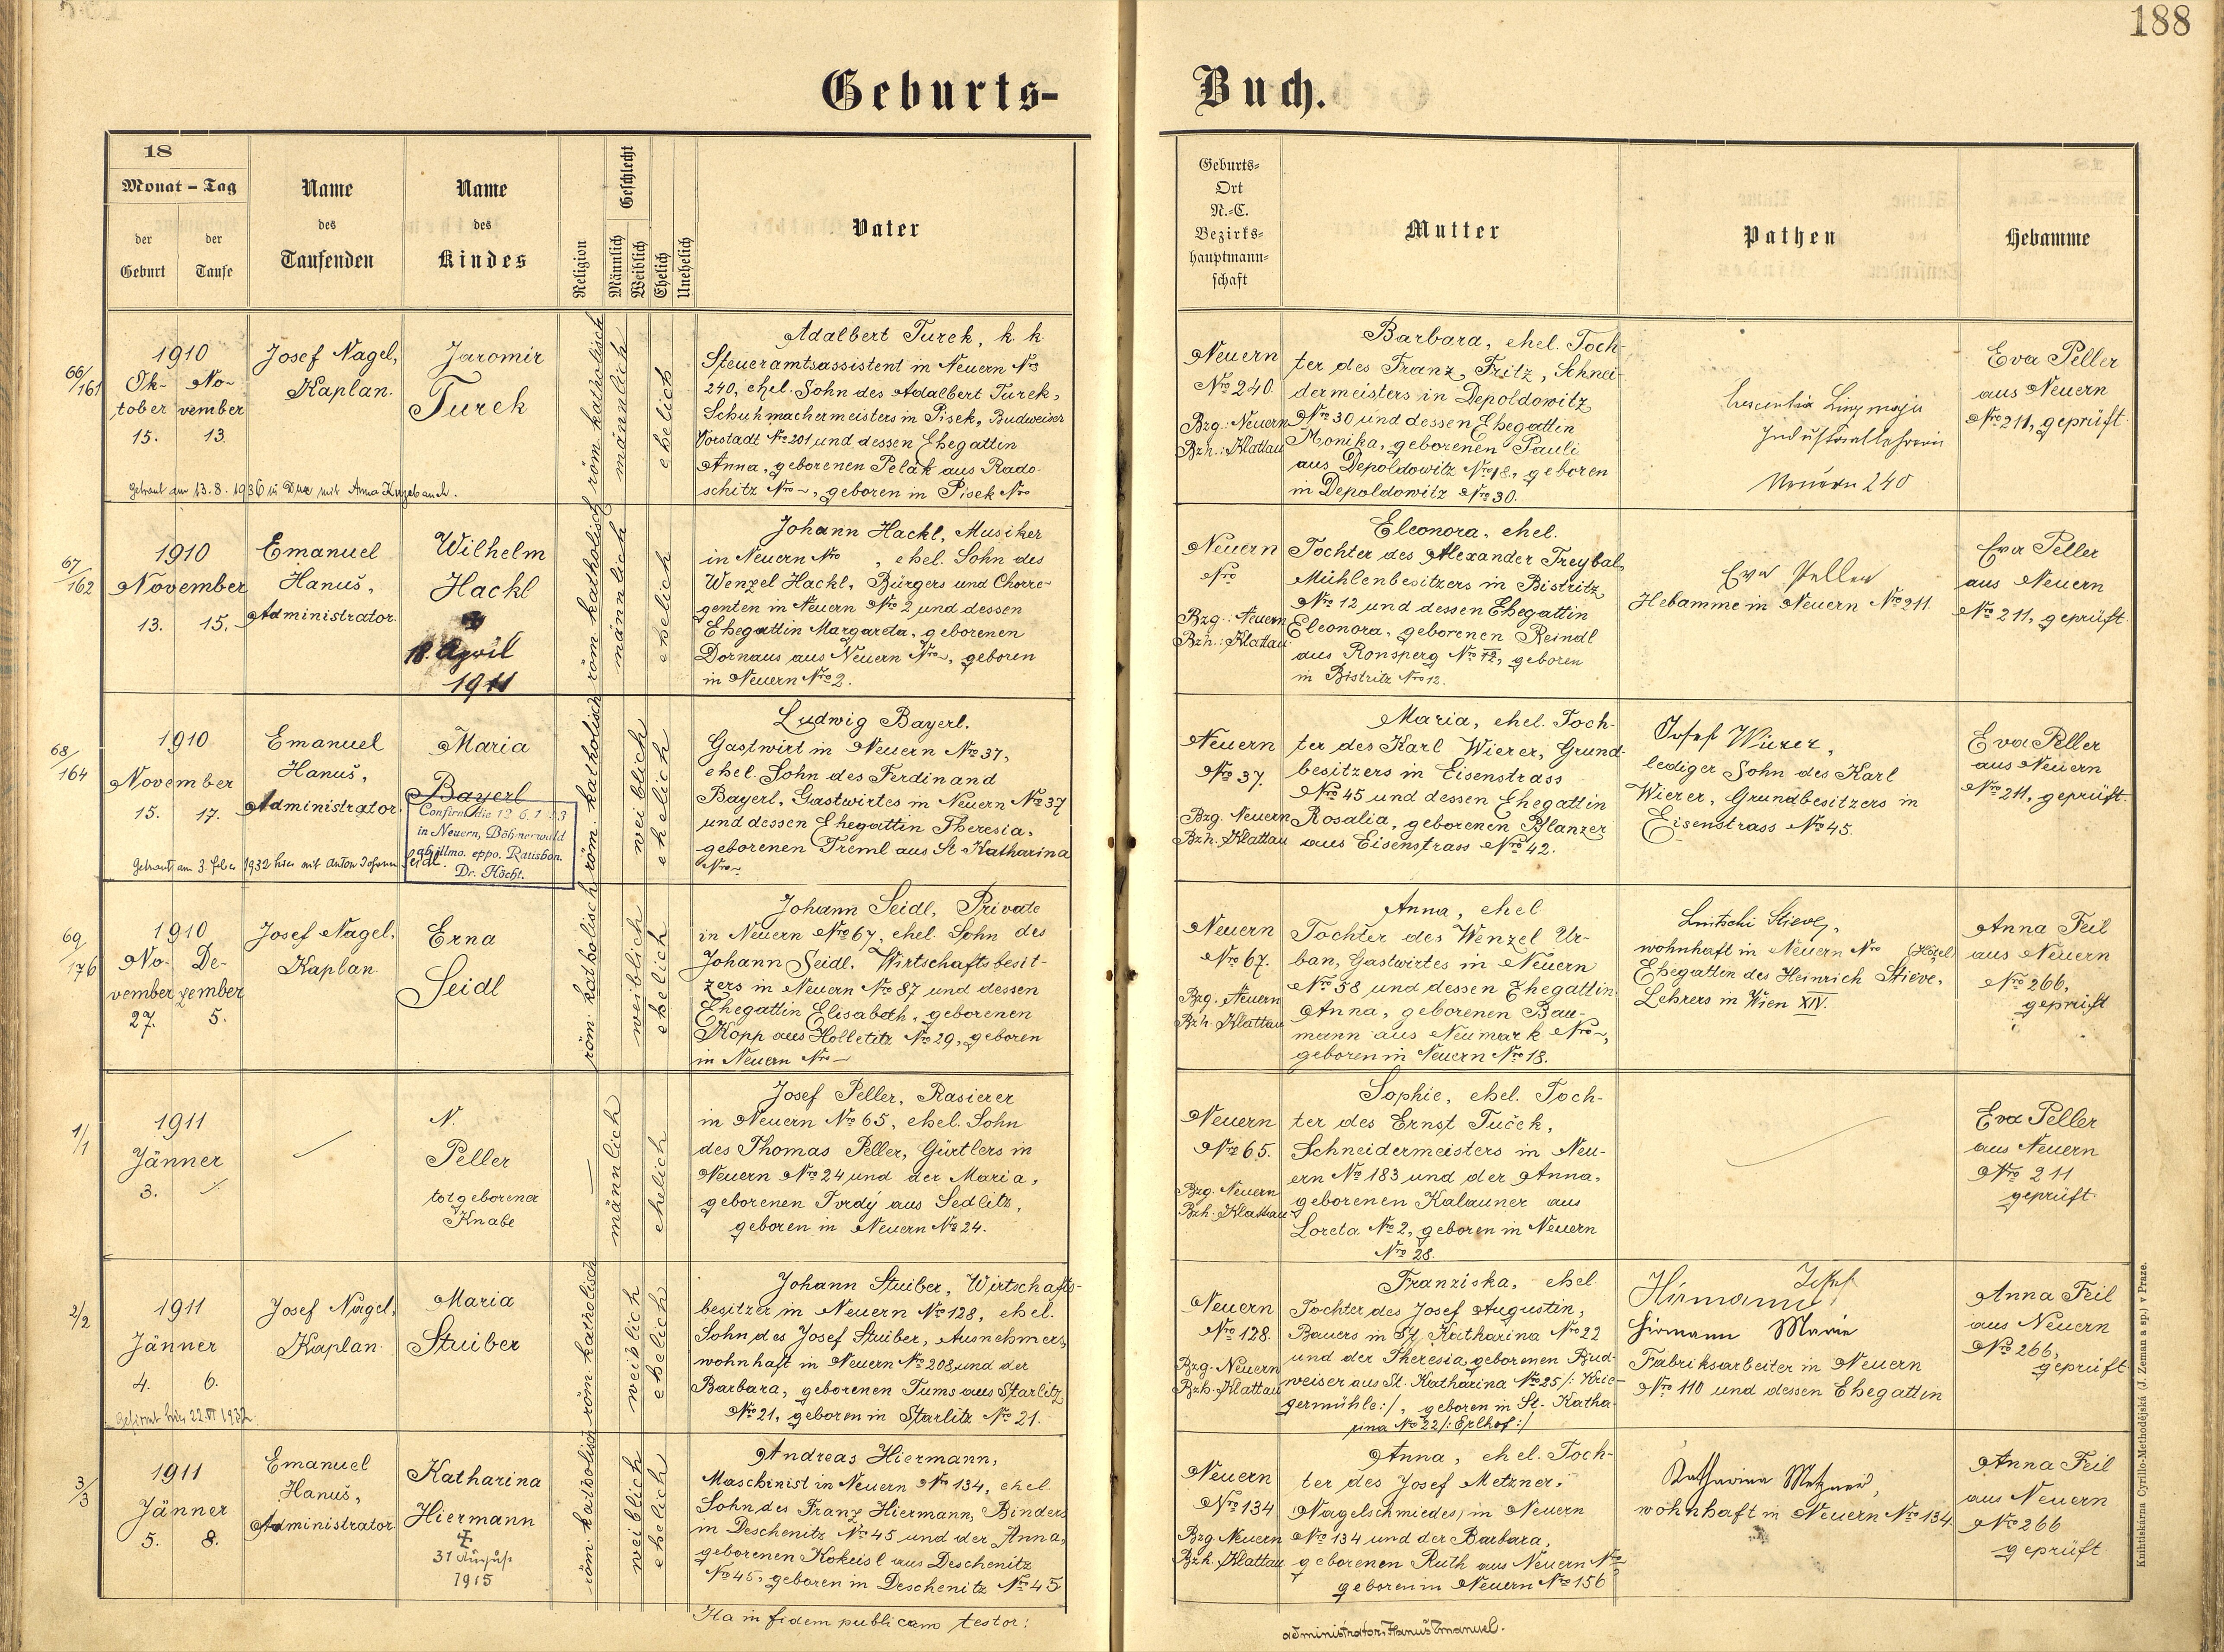 188
Geburts-
Buch.
18
Monat - Tag
der Geburt
der Taufe
Name
des
Taufenden
Name
des
Kindes
Religion
Geschlecht
Männlich
Weiblich
Ehelich
Unehelich
Vater
Geburts-
Ort
N.-C.
Bezirks-
hauptmann-
schaft
Mutter
Pathen
Hebamme
66/161
1910
Ok- No-
tober vember
15. 13.
Josef Nagel,
Kaplan.
Jaromir
Turek
röm. katholisch
männlich
ehelich
Adalbert Turek, k. k.
Steueramtsassistent in Neuern Nro
240, ehel. Sohn des Adalbert Turek,
Schuhmachermeisters in Pisek, Budweiser
Vorstadt Nro 201 und dessen Ehegattin
Anna, geborenen Pelák aus Rado-
schitz Nro ~, geboren in Pisek Nro
Getraut am 13.8.1936 in Dux mit Anna
Neuern
Nro 240.
Bzg.: Neuern
Bzh.: Klattau
Barbara, ehel. Toch-
ter des Franz Fritz, Schnei-
dermeisters in Depoldowitz
Nro 30 und dessen Ehegattin
Monika, geborenen Pauli
aus Depoldowitz Nro 18, geboren
in Depoldowitz Nro 30.
Industriallehrerin
Neuern 240
Eva Peller
aus Neuern
Nro 211, geprüft.
67/162
1910
November
13. 15.
Emanuel
Hanuš,
Administrator.
Wilhelm
Hackl
18. April
1911
röm. katholisch
männlich
ehelich
Johann Hackl, Musiker
in Neuern Nro , ehel. Sohn des
Wenzel Hackl, Bürgers und Chorre-
genten in Neuern Nro 2 und dessen
Ehegattin Margareta, geborenen
Dornaus aus Neuern Nro ~, geboren
in Neuern Nro 2.
Neuern
Nro
Bzg.: Neuern
Bzh.: Klattau
Eleonora, ehel.
Tochter des Alexander Treybal,
Mühlenbesitzers in Bistritz
Nro 12 und dessen Ehegattin
Eleonora, geborenen Reindl
aus Ronsperg Nro 12, geboren
in Bistritz Nro 12.
Eva Peller
Hebamme in Neuern Nro 211.
Eva Peller
aus Neuern
Nro 211, geprüft.
68/164
1910
November
15. 17.
Emanuel
Hanuš,
Administrator.
Maria
Bayerl
Confirm. die 12 6. 1 43
in Neuern, Böhmerwald
ab illmo. eppo. Ratisbon.
Dr. Höcht.
röm. katholisch
weiblich
ehelich
Ludwig Bayerl,
Gastwirt in Neuern Nro 37,
ehel. Sohn des Ferdinand
Bayerl, Gastwirtes in Neuern Nro 37
und dessen Ehegattin Theresia,
geborenen Treml aus St. Katharina
Nro ~
Getraut am 3. Feber 1932 hier mit Anton Johann Seidl.
Neuern
Nro 37.
Bzg. Neuern
Bzh. Klattau
Maria, ehel. Toch-
ter des Karl Wierer, Grund-
besitzers in Eisenstrass
Nro 45 und dessen Ehegattin
Rosalia, geborenen Pflanzer
aus Eisenstrass Nro 42.
Josef Wierer,
lediger Sohn des Karl
Wierer, Grundbesitzers in
Eisenstrass Nro 45.
Eva Peller
aus Neuern
Nro 211, geprüft.
69/176
1910
No- De-
vember zember
27. 5.
Josef Nagel,
Kaplan.
Erna
Seidl
röm. katholisch
weiblich
ehelich
Johann Seidl, Private
in Neuern Nro 67, ehel. Sohn des
Johann Seidl, Wirtschaftsbesit-
zers in Neuern Nro 87 und dessen
Ehegattin Elisabeth, geborenen
Kopp aus Holletitz Nro 29, geboren
in Neuern Nro ~
Neuern
Nro 67.
Bzg. Neuern
Bzh. Klattau
Anna, ehel
Tochter des Wenzel Ur-
ban, Gastwirtes in Neuern
Nro 58 und dessen Ehegattin
Anna, geborenen Bau-
mann aus Neumark Nro ~,
geboren in Neuern Nro 18.
Stieve,
wohnhaft in Neuern Nro (Hotel
Ehegattin des Heinrich Stieve,
Lehrers in Wien XIV.
Anna Feil
aus Neuern
Nro 266,
geprüft
1/1
1911
Jänner
3.
N.
Peller
totgeborener
Knabe
männlich
ehelich
Josef Peller, Rasierer
in Neuern Nro 65, ehel. Sohn
des Thomas Peller, Gürtlers in
Neuern Nro 24 und der Maria,
geborenen Tvrdý aus Sedlitz,
geboren in Neuern Nro 24.
Neuern
Nro 65.
Bzg. Neuern
Bzh. Klattau
Sophie, ehel. Toch-
ter des Ernst Tuček,
Schneidermeisters in Neu-
ern Nro 183 und der Anna,
geborenen Kalauner aus
Loreta Nro 2, geboren in Neuern
Nro 28.
Eva Peller
aus Neuern
Nro 211
geprüft.
2/2
1911
Jänner
4. 6.
Josef Nagel,
Kaplan.
Maria
Stuiber
röm. katholisch
weiblich
ehelich
Johann Stuiber, Wirtschafts-
besitzer in Neuern Nro 128, ehel.
Sohn des Josef Stuiber, Ausnehmers,
wohnhaft in Neuern Nro 208 und der
Barbara, geborenen Tums aus Starlitz
Nro 21, geboren in Starlitz Nro 21.
Gefirmt hier 22. VI 1932
Neuern
Nro 128.
Bzg. Neuern
Bzh. Klattau
Franziska, ehel.
Tochter des Josef Augustin,
Bauers in St. Katharina Nro 22
und der Theresia geborenen Bud-
weiser aus St. Katharina Nro 25 /: Krie-
germühle :/, geboren in St. Katha-
rina Nro 22 /: Erlhof :/
Hirmann Josef
Hirmann Marie
Fabriksarbeiter in Neuern
Nro 110 und dessen Ehegattin
Anna Feil
aus Neuern
Nro 266,
geprüft
3/3
1911
Jänner
5. 8.
Emanuel
Hanuš,
Administrator.
Katharina
Hiermann
31 August
1915
röm. katholisch
weiblich
ehelich
Andreas Hiermann,
Maschinist in Neuern Nro 134, ehel.
Sohn des Franz Hiermann, Binders
in Deschenitz Nro 45 und der Anna,
geborenen Kokeisl aus Deschenitz
Nro 45, geboren in Deschenitz Nro 45
Neuern
Nro 134
Bzg. Neuern
Bzh. Klattau
Anna, ehel. Toch-
ter des Josef Metzner,
Nagelschmiedes, in Neuern
Nro 134 und der Barbara,
geborenen Ruth aus Neuern Nro
geboren in Neuern Nro 156
Katharina Metzner,
wohnhaft in Neuern Nro 134
Anna Feil
aus Neuern
Nro 266
geprüft
Ita in fidem publicam testor:
administrator Hanuš Emanuel.
Knihtiskárna Cyrillo-Methodějská (J. Zeman a sp.) v Praze.